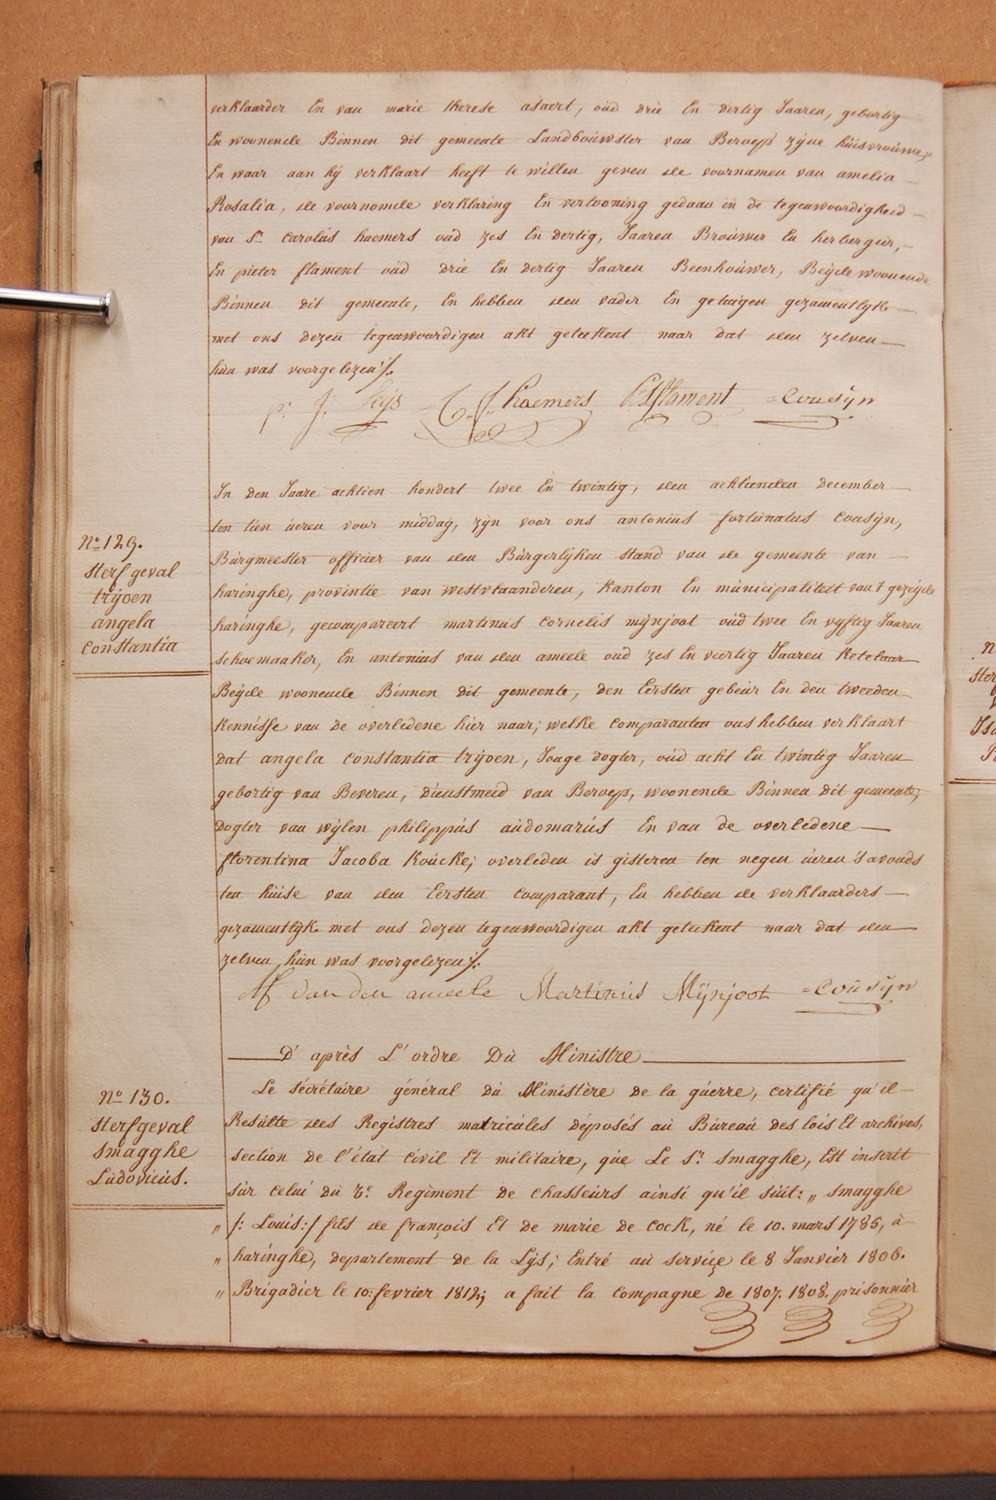 verklaarder En van marie therese asaert, oúd drie En dertig Jaaren, gebortig
En woonende Binnen dit gemeente Landboúwster van Beroeps zijne húisvroúwe,
En waar aan hij verklaart heeft te willen geven de voornamen van amelia
Rosalia, de voornomde verklaring En vertooning gedaan in de tegenwoordigheid
van Sr. Carolús haemers oúd zes En dertig, Jaaren Broúwer En herbergier,
En pieter flament oúd drie En dertig Jaaren Beenhoúwer, Beijde woonende
Binnen dit gemeente, En hebben den vader En getuigen gezamentlijk
met ons dezen tegenwoordigen akt geteekent naar dat den zelven
hún was voorgelezen ./.
p: J: C: J: haemers flament =Coúsijn
In den Jaare achtien hondert twee En twintig, den achtienden december
ten tien úeren voor middag, zijn voor ons antoniús fortúnatús Coúsijn,
Búrgmeester officier van den Búrgerlijken stand van de gemeente van
haringhe, provintie van westvlaanderen, kanton En múnicipaliteit van 't gezeijde
haringhe, gecompareert martinus cornelis mijnjoot oúd twee En vijftig Jaaren
schoemaaker, En antonius van den ameele oud zes En veertig Jaaren ketelaar
Beijde woonende Binnen dit gemeente, den Eersten gebeúr En den tweeden
kennisse van de overledene hier naar; welke comparanten ons hebben verklaart
dat angela constantia trijoen, Jonge dogter, oúd acht En twintig Jaaren
gebortig van Beveren, dienstmeid van Beroeps, woonende Binnen dit gemeente,
dogter van wijlen philippús aúdomarús En van de overledene
florentina Jacoba Koúcke; overleden is gisteren ten negen úeren 's avonds
ten húise van den Eersten comparant, En hebben de verklaarders
gezamentlijk met ons dezen tegenwoordigen akt geteekent naar dat den
zelven hún was voorgelezen ./.
van den ameele Martinús Mijnjoot =Coúsijn
No 129.
sterfgeval
trijoen
angela
constantia
D' après L'ordre Dú Ministre
No 130.
sterfgeval
smagghe
Lúdovicús.
Le sécrétaire général dú Ministère de la gúerre, certifié qú'il
Resúlte des Régistres matricúles déposés aú Búreaú des lois Et archives,
section de l'état civil Et militaire, qúe Le Sr. smagghe, Est inscrit
súr celúi dú 7e. Regiment de chasseúrs ainsi qú'il súit: „ smagghe
„ /: Loúis:/ fils de françois Et de marie de cock, né le 10. mars 1785, à
„ haringhe, departement de la Lijs; Entré aú service le 8 Janviér 1806.
„ Brigadiér le 10: fevrier 1812; a fait la compagne de 1807. 1808. prisonniér